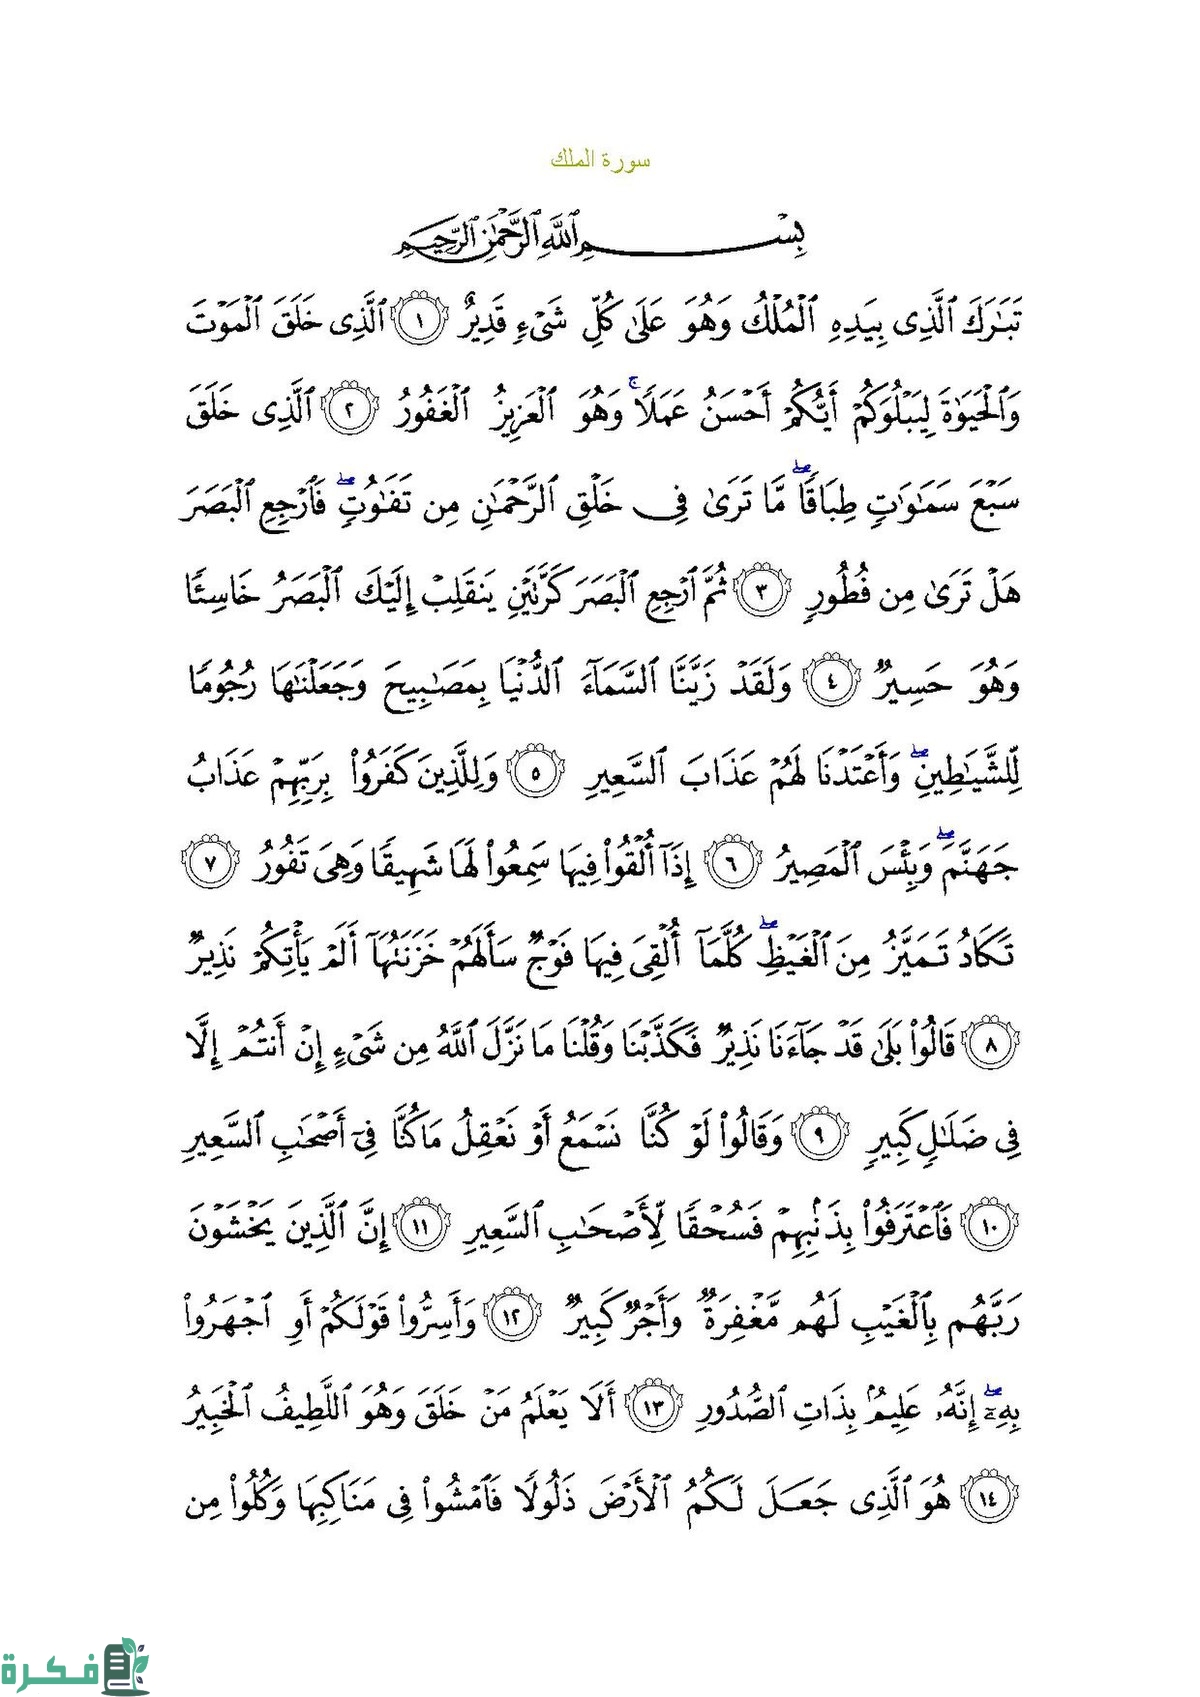 سورة الملك
بِسْمِ ٱللَّهِ ٱلرَّحْمَٰنِ ٱلرَّحِيمِ
تَبَٰرَكَ ٱلَّذِى بِيَدِهِ ٱلْمُلْكُ وَهُوَ عَلَىٰ كُلِّ شَىْءٍ قَدِيرٌ ١ ٱلَّذِى خَلَقَ ٱلْمَوْتَ
وَٱلْحَيَوٰةَ لِيَبْلُوَكُمْ أَيُّكُمْ أَحْسَنُ عَمَلًا ۚ وَهُوَ ٱلْعَزِيزُ ٱلْغَفُورُ ٢ ٱلَّذِى خَلَقَ
سَبْعَ سَمَٰوَٰتٍ طِبَاقًا ۖ مَّا تَرَىٰ فِى خَلْقِ ٱلرَّحْمَٰنِ مِن تَفَٰوُتٍ ۖ فَٱرْجِعِ ٱلْبَصَرَ
هَلْ تَرَىٰ مِن فُطُورٍ ٣ ثُمَّ ٱرْجِعِ ٱلْبَصَرَ كَرَّتَيْنِ يَنقَلِبْ إِلَيْكَ ٱلْبَصَرُ خَاسِئًا
وَهُوَ حَسِيرٌ ٤ وَلَقَدْ زَيَّنَّا ٱلسَّمَآءَ ٱلدُّنْيَا بِمَصَٰبِيحَ وَجَعَلْنَٰهَا رُجُومًا
لِّلشَّيَٰطِينِ ۖ وَأَعْتَدْنَا لَهُمْ عَذَابَ ٱلسَّعِيرِ ٥ وَلِلَّذِينَ كَفَرُوا۟ بِرَبِّهِمْ عَذَابُ
جَهَنَّمَ ۖ وَبِئْسَ ٱلْمَصِيرُ ٦ إِذَآ أُلْقُوا۟ فِيهَا سَمِعُوا۟ لَهَا شَهِيقًا وَهِىَ تَفُورُ ٧
تَكَادُ تَمَيَّزُ مِنَ ٱلْغَيْظِ ۖ كُلَّمَآ أُلْقِىَ فِيهَا فَوْجٌ سَأَلَهُمْ خَزَنَتُهَآ أَلَمْ يَأْتِكُمْ نَذِيرٌ
٨ قَالُوا۟ بَلَىٰ قَدْ جَآءَنَا نَذِيرٌ فَكَذَّبْنَا وَقُلْنَا مَا نَزَّلَ ٱللَّهُ مِن شَىْءٍ إِنْ أَنتُمْ إِلَّا
فِى ضَلَٰلٍ كَبِيرٍ ٩ وَقَالُوا۟ لَوْ كُنَّا نَسْمَعُ أَوْ نَعْقِلُ مَا كُنَّا فِىٓ أَصْحَٰبِ ٱلسَّعِيرِ
١٠ فَٱعْتَرَفُوا۟ بِذَنۢبِهِمْ فَسُحْقًا لِّأَصْحَٰبِ ٱلسَّعِيرِ ١١ إِنَّ ٱلَّذِينَ يَخْشَوْنَ
رَبَّهُم بِٱلْغَيْبِ لَهُم مَّغْفِرَةٌ وَأَجْرٌ كَبِيرٌ ١٢ وَأَسِرُّوا۟ قَوْلَكُمْ أَوِ ٱجْهَرُوا۟
بِهِۦٓ ۖ إِنَّهُۥ عَلِيمٌۢ بِذَاتِ ٱلصُّدُورِ ١٣ أَلَا يَعْلَمُ مَنْ خَلَقَ وَهُوَ ٱللَّطِيفُ ٱلْخَبِيرُ
١٤ هُوَ ٱلَّذِى جَعَلَ لَكُمُ ٱلْأَرْضَ ذَلُولًا فَٱمْشُوا۟ فِى مَنَاكِبِهَا وَكُلُوا۟ مِن
فكرة